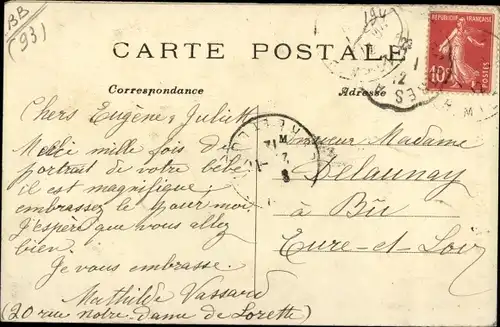 BB
(93)
CARTE POSTALE
Correspondance
Adresse
RÉPUBLIQUE FRANÇAISE
10c
POSTES
Chers Eugène & Juliette
Mille fois du
portrait de votre bébé
il est magnifique
embrassez le pour moi
J'espère que vous allez
bien.
Je vous embrasse.
Mathilde Vassard
(20 rue notre-Dame de Lorette)
Monsieur Madame
Delaunay
à Bû
Eure-et-Loir